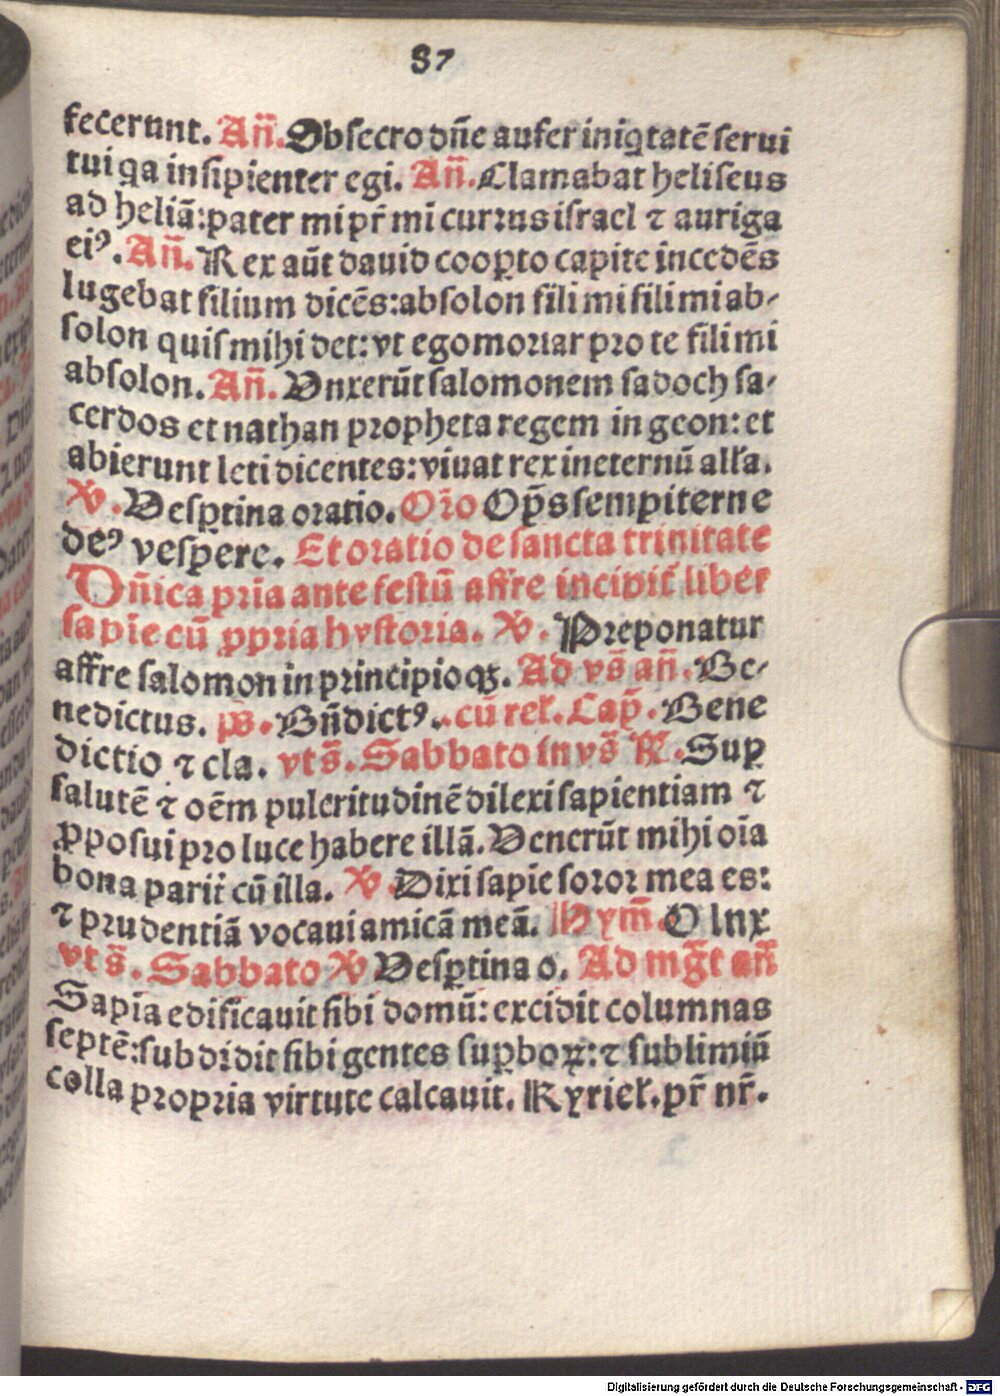 87
fecerunt. Añ. Obsecro dñe aufer iniq̃tatẽ serui
tui qa insipienter egi. Añ. Clamabat heliseus
ad heliã: pater mi pr̃ mi currus israel ⁊ auriga
eiꝰ. Añ. Rex aũt dauid coopto capite incedẽs
lugebat filium dicẽs: absolon fili mi fili mi ab-
solon quis mihi det: vt ego moriar pro te fili mi
absolon. Añ. Vnxerũt salomonem sadoch sa-
cerdos et nathan propheta regem in geon: et
abierunt leti dicentes: viuat rex in eternũ alľa.
℣. Vesꝑtina oratio. Oro Op̃s sempiterne
deꝰ vespere. Et oratio de sancta trinitate
Dñica pria ante festũ affre incipit̃ liber
sapiẽ cũ ꝓpria hystoria. ℣. Preponatur
affre salomon in principio qꝫ. Ad vs̃ añ. Be-
nedictus. ps̃. Bñdictꝰ. cũ rel̃. Cap̃. Bene
dictio ⁊ cla. vt s̃. Sabbato in vs̃ ℟. Suꝑ
salutẽ ⁊ oẽm pulcritudinẽ dilexi sapientiam ⁊
ꝓposui pro luce habere illã. Venerũt mihi oĩa
bona parit̃ cũ illa. ℣ Dixi sapie soror mea es:
⁊ prudentiã vocaui amicã meã. Hym̃. O lux
vt s̃. Sabbato ℣ Vesꝑtina o. Ad mg̃t añ
Sapĩa edificauit sibi domũ: excidit columnas
septẽ: subdidit sibi gentes suꝑboꝝ: ⁊ sublimiũ
colla propria virtute calcauit. Kyriel̃. pr̃ nr̃.
Digitalisierung gefördert durch die Deutsche Forschungsgemeinschaft - DFG